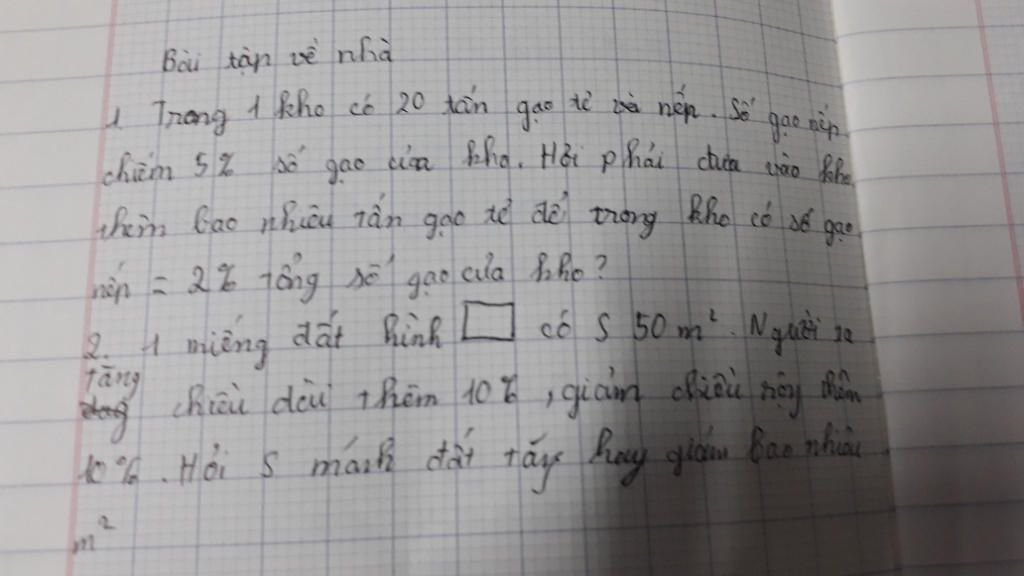 Bài tập về nhà
1. Trong 1 kho có 20 tấn gạo tẻ và nếp. Số gạo nếp
chiếm 5% số gạo của kho. Hỏi phải đưa vào kho
thêm bao nhiêu tấn gạo tẻ để trong kho có số gạo
nếp = 2% tổng số gạo của kho?
2. 1 miếng đất hình có S 50 m². Người ta
tăng chiều dài thêm 10%, giảm chiều rộng thêm
10%. Hỏi S mảnh đất tăng hay giảm bao nhiêu
m²